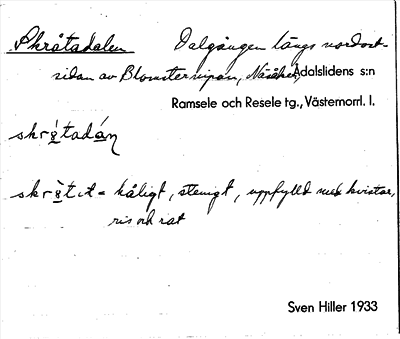 Skråtadalen Dalgången längs nordost-
sidan av Blomstervipan, Näsåker, Ådalslidens s:n
Ramsele och Resele tg., Västernorrl. l.
skr tad n
skr t it = håligt, stenigt, uppfylld med kvistar,
ris och rat
Sven Hiller 1933